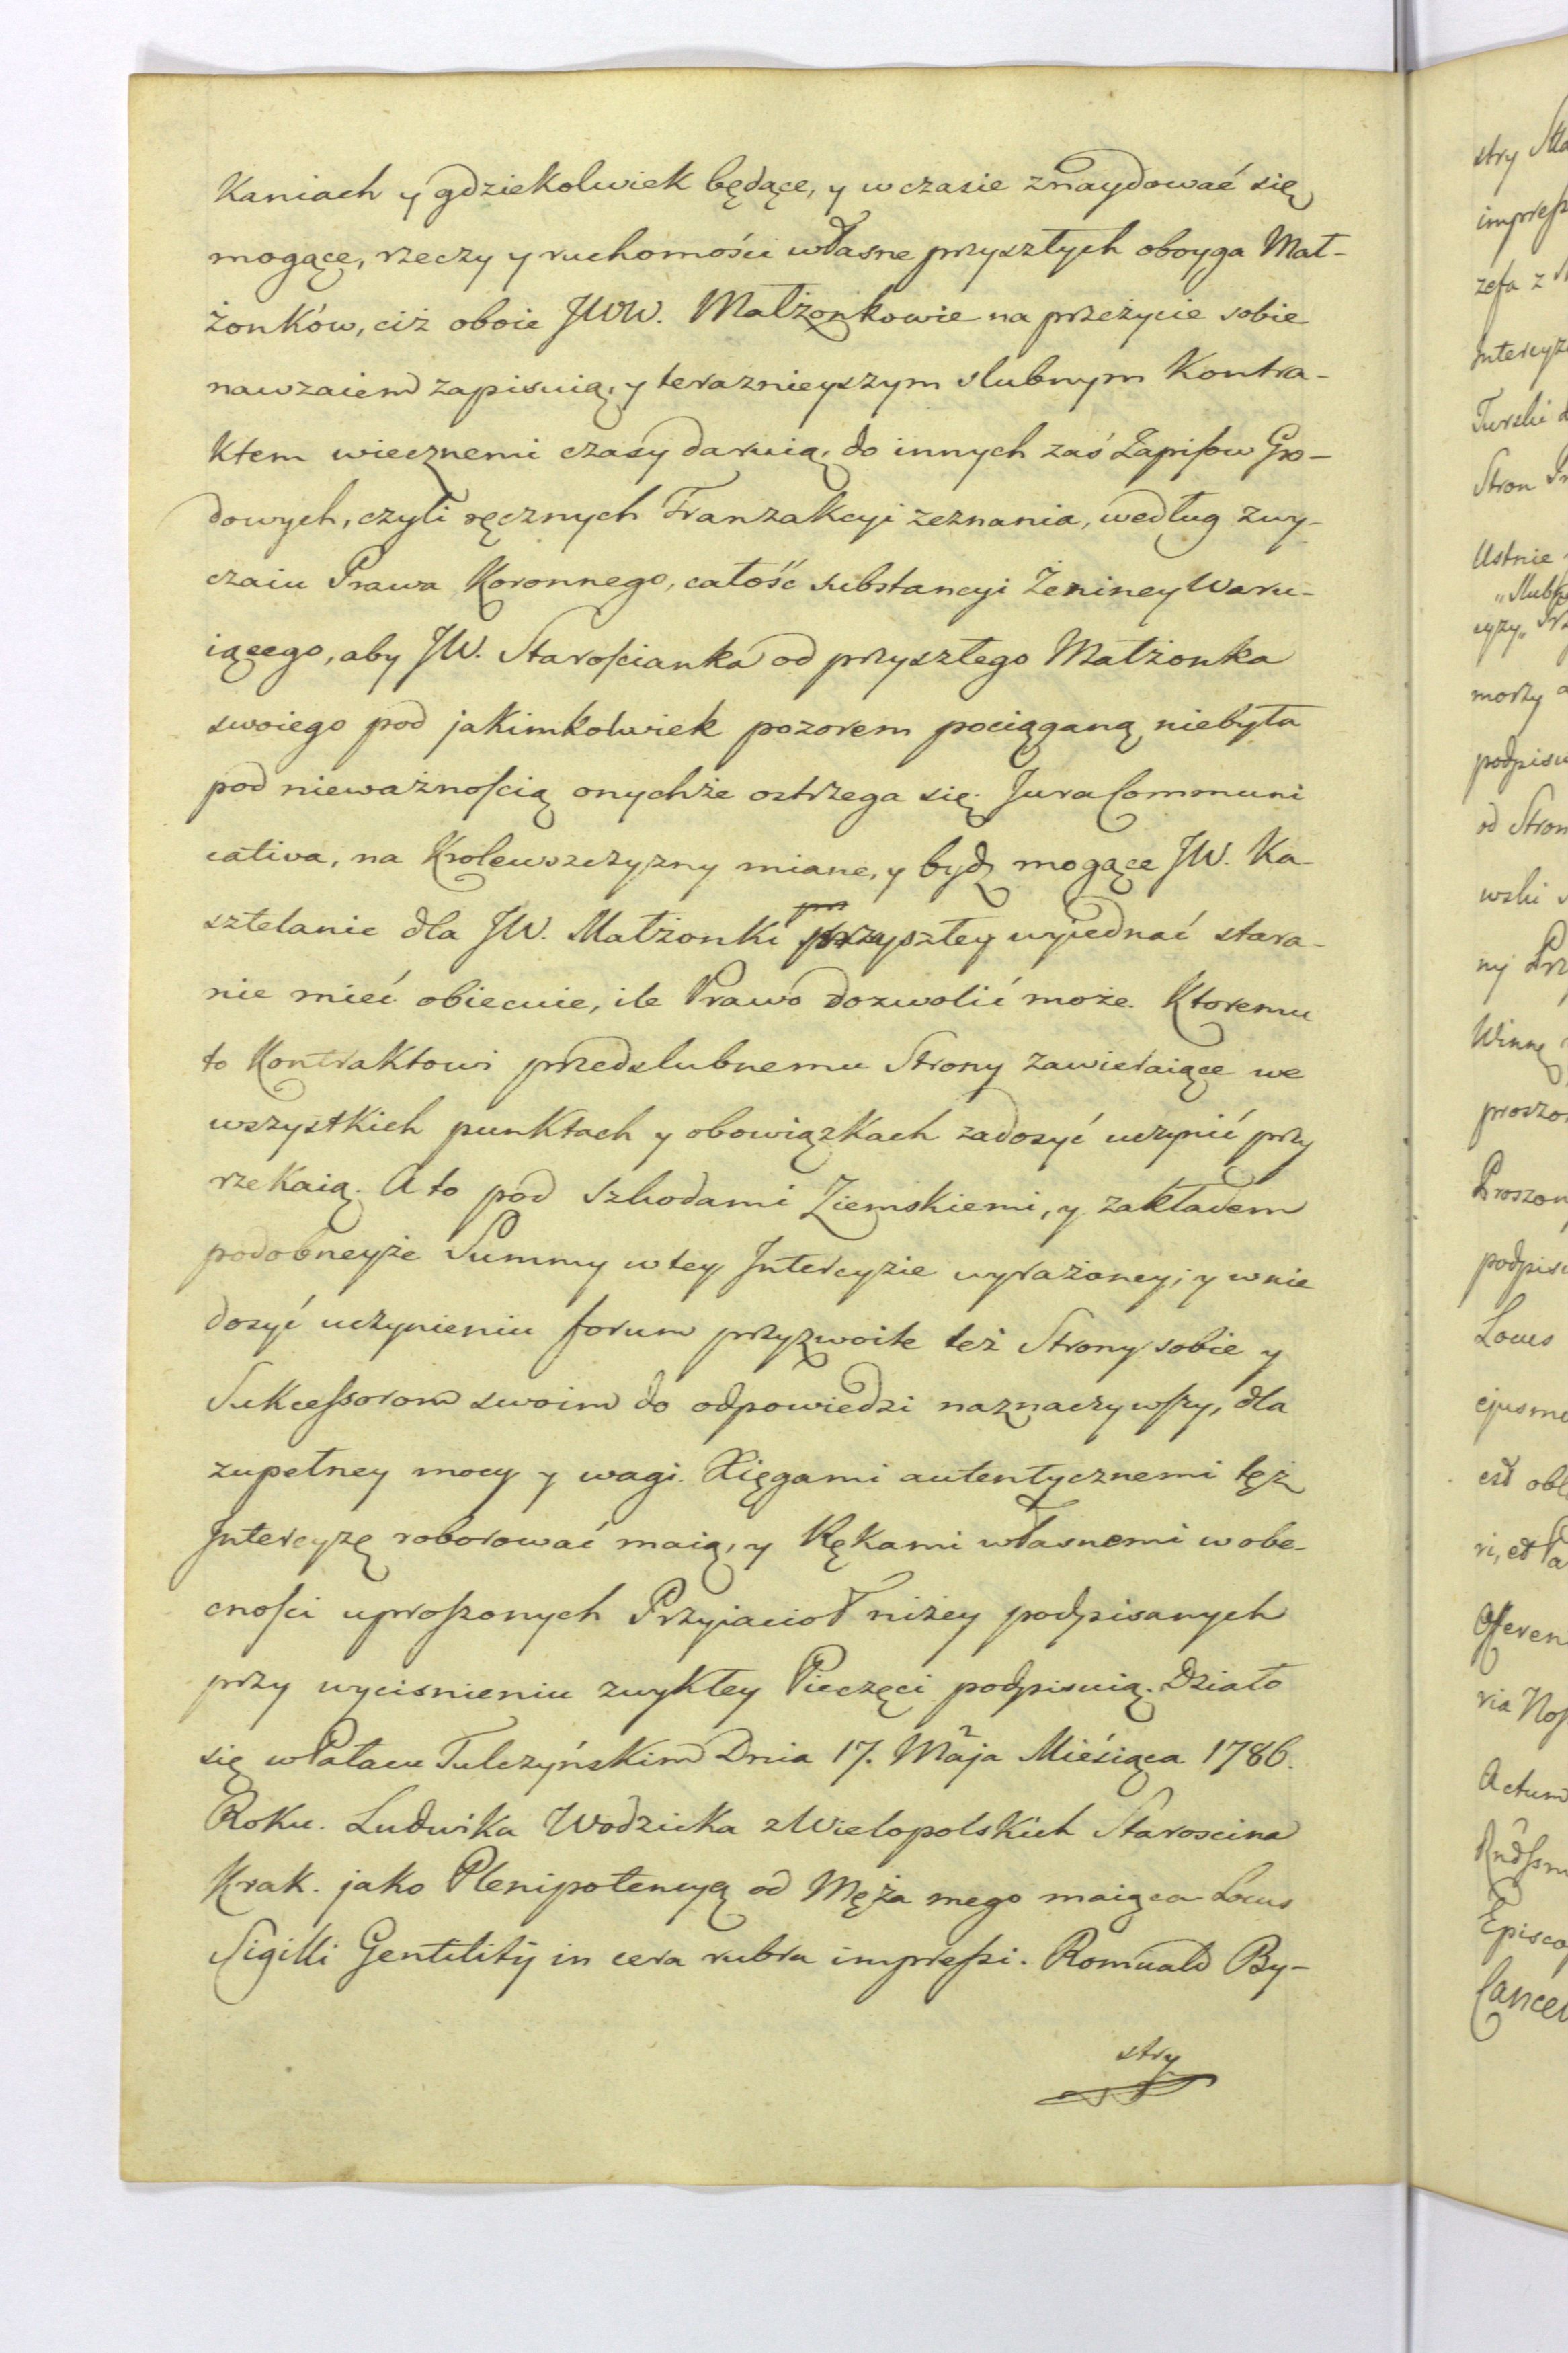 Kaniach y gdziekolwiek będące, y w czasie znaydować się
mogące, rzeczy y ruchomości własne przyszłych oboyga Mał-
żonków, ciż oboie JWW. Małżonkowie na przeżycie sobie
nawzaiem zapisuią, y teraznieyszym slubnym Kontra-
Ktem wiecznemi czasy daruią, do innych zaś Zapisow Gro-
dowych, czyli ręcznych Tranzakcyi zeznania, według zwy-
czaiu Prawa Koronnego, całość substancyi Żeniney Waru-
iącego, aby JW. Starościanka od przyszłego Małżonka
swoiego pod jakimkolwiek pozorem pociąganą niebyła
pod nieważnością onychże ostrzega się. Jura Communi
cativa, na Krolewszczyzny miane, y bydź mogące JW. Ka-
sztelanic dla JW. Małżonki przyszłey wyiednać stara-
nie mieć obiecuie, ile Prawo dozwolić może. Ktoremu
to Kontraktowi przedslubnemu Strony zawieraiące we
wszystkich punktach y obowiązkach zadosyć uczynić przy
rzekaią. A to pod Szkodami Ziemskiemi, y zakładem
podobneyże Summy w tey Intercyzie wyrażoney; y w nie
dosyć uczynieniu forum przyzwoite też Strony sobie y
Sukcessorom swoim do odpowiedzi naznaczywszy, dla
zupełney mocy y wagi. Xięgami autentycznemi też
Intercyzę roborować maią, y Rękami własnemi w obe-
cności uproszonych Przyiacioł niżey podpisanych
przy wycisnieniu zwykłey Pieczęci podpisuią. Działo
się w Pałacu Tulczyńskim Dnia 17. Maja Miésiąca 1786.
Roku. Ludwika Wodzicka z Wielopolskich Staroscina
Krak. jako Plenipotencyą od Męża mego maiąca Locus
Sigilli Gentilitij in cera rubra impressi. Romuald By-
stry